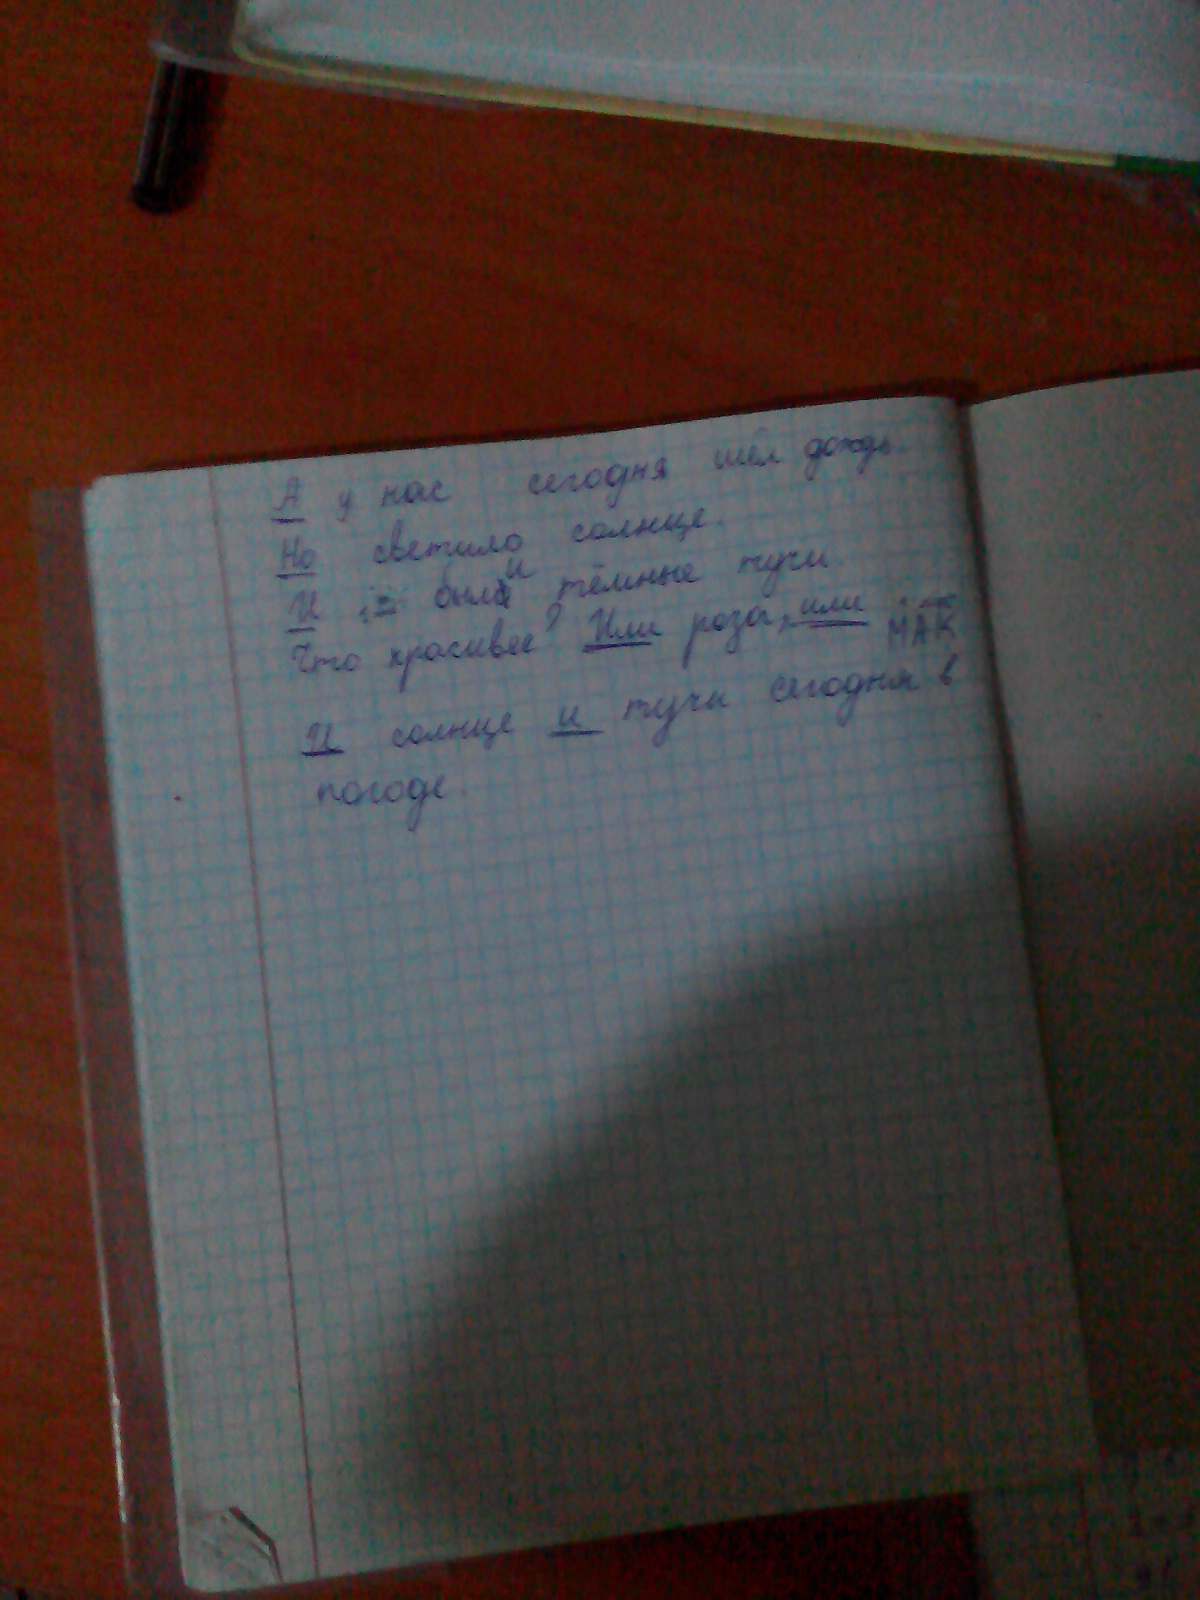 А у нас сегодня шёл дождь.
Но светило солнце.
И были тёмные тучи.
Что красивее? Или роза, или МАК
И солнце и тучи сегодня в
погоде.